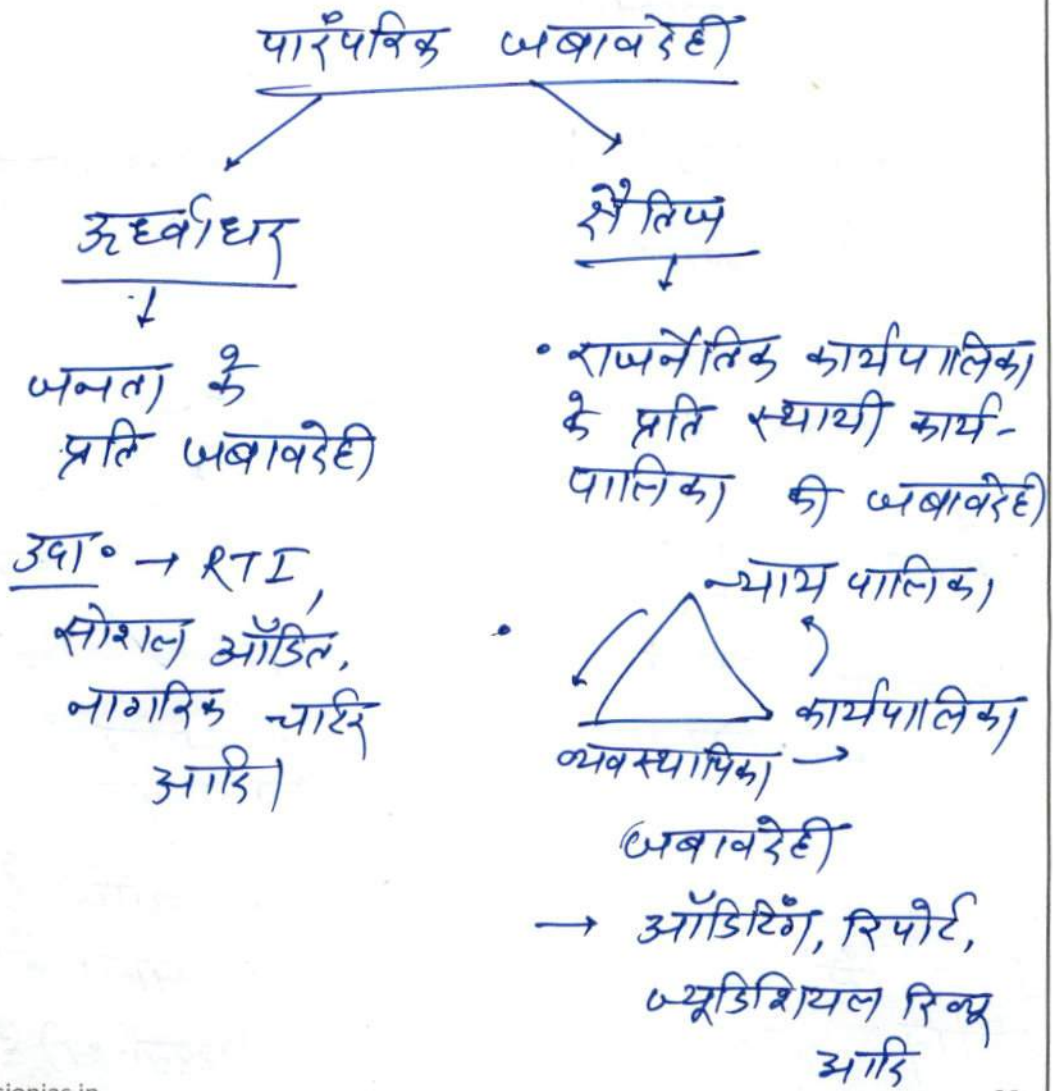 पारंपरिक जबावदेही
ऊर्ध्वाधर
जनता के
प्रति जबावदेही
उदा॰ → RTI,
सोशल ऑडित,
नागरिक चार्टर
आदि।
क्षैतिज
• राजनैतिक कार्यपालिका
के प्रति स्थायी कार्य-
पालिका की जबावदेही
• न्याय पालिका
कार्यपालिका
व्यवस्थापिका →
जबावदेही
→ ऑडिटिंग, रिपोर्ट,
ज्यूडिशियल रिव्यू
आदि